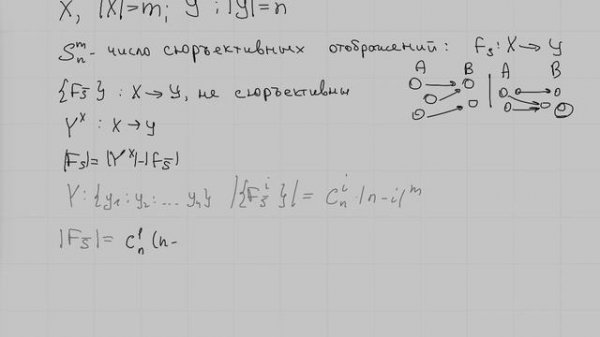 X, |X|=m; Y; |Y|=n
Sₙᵐ - число сюръективных отображений: Fₛ: X → Y
A B A B
{F_s̄} : X → Y, не сюръективны
Yˣ : X → Y
|Fₛ|=|Yˣ|-|F_s̄|
Y: {y₁; y₂; ... yₙ} |{F_s̄ⁱ}| = Cₙⁱ |n-i|ᵐ
|F_s̄| = Cₙ¹ (n-